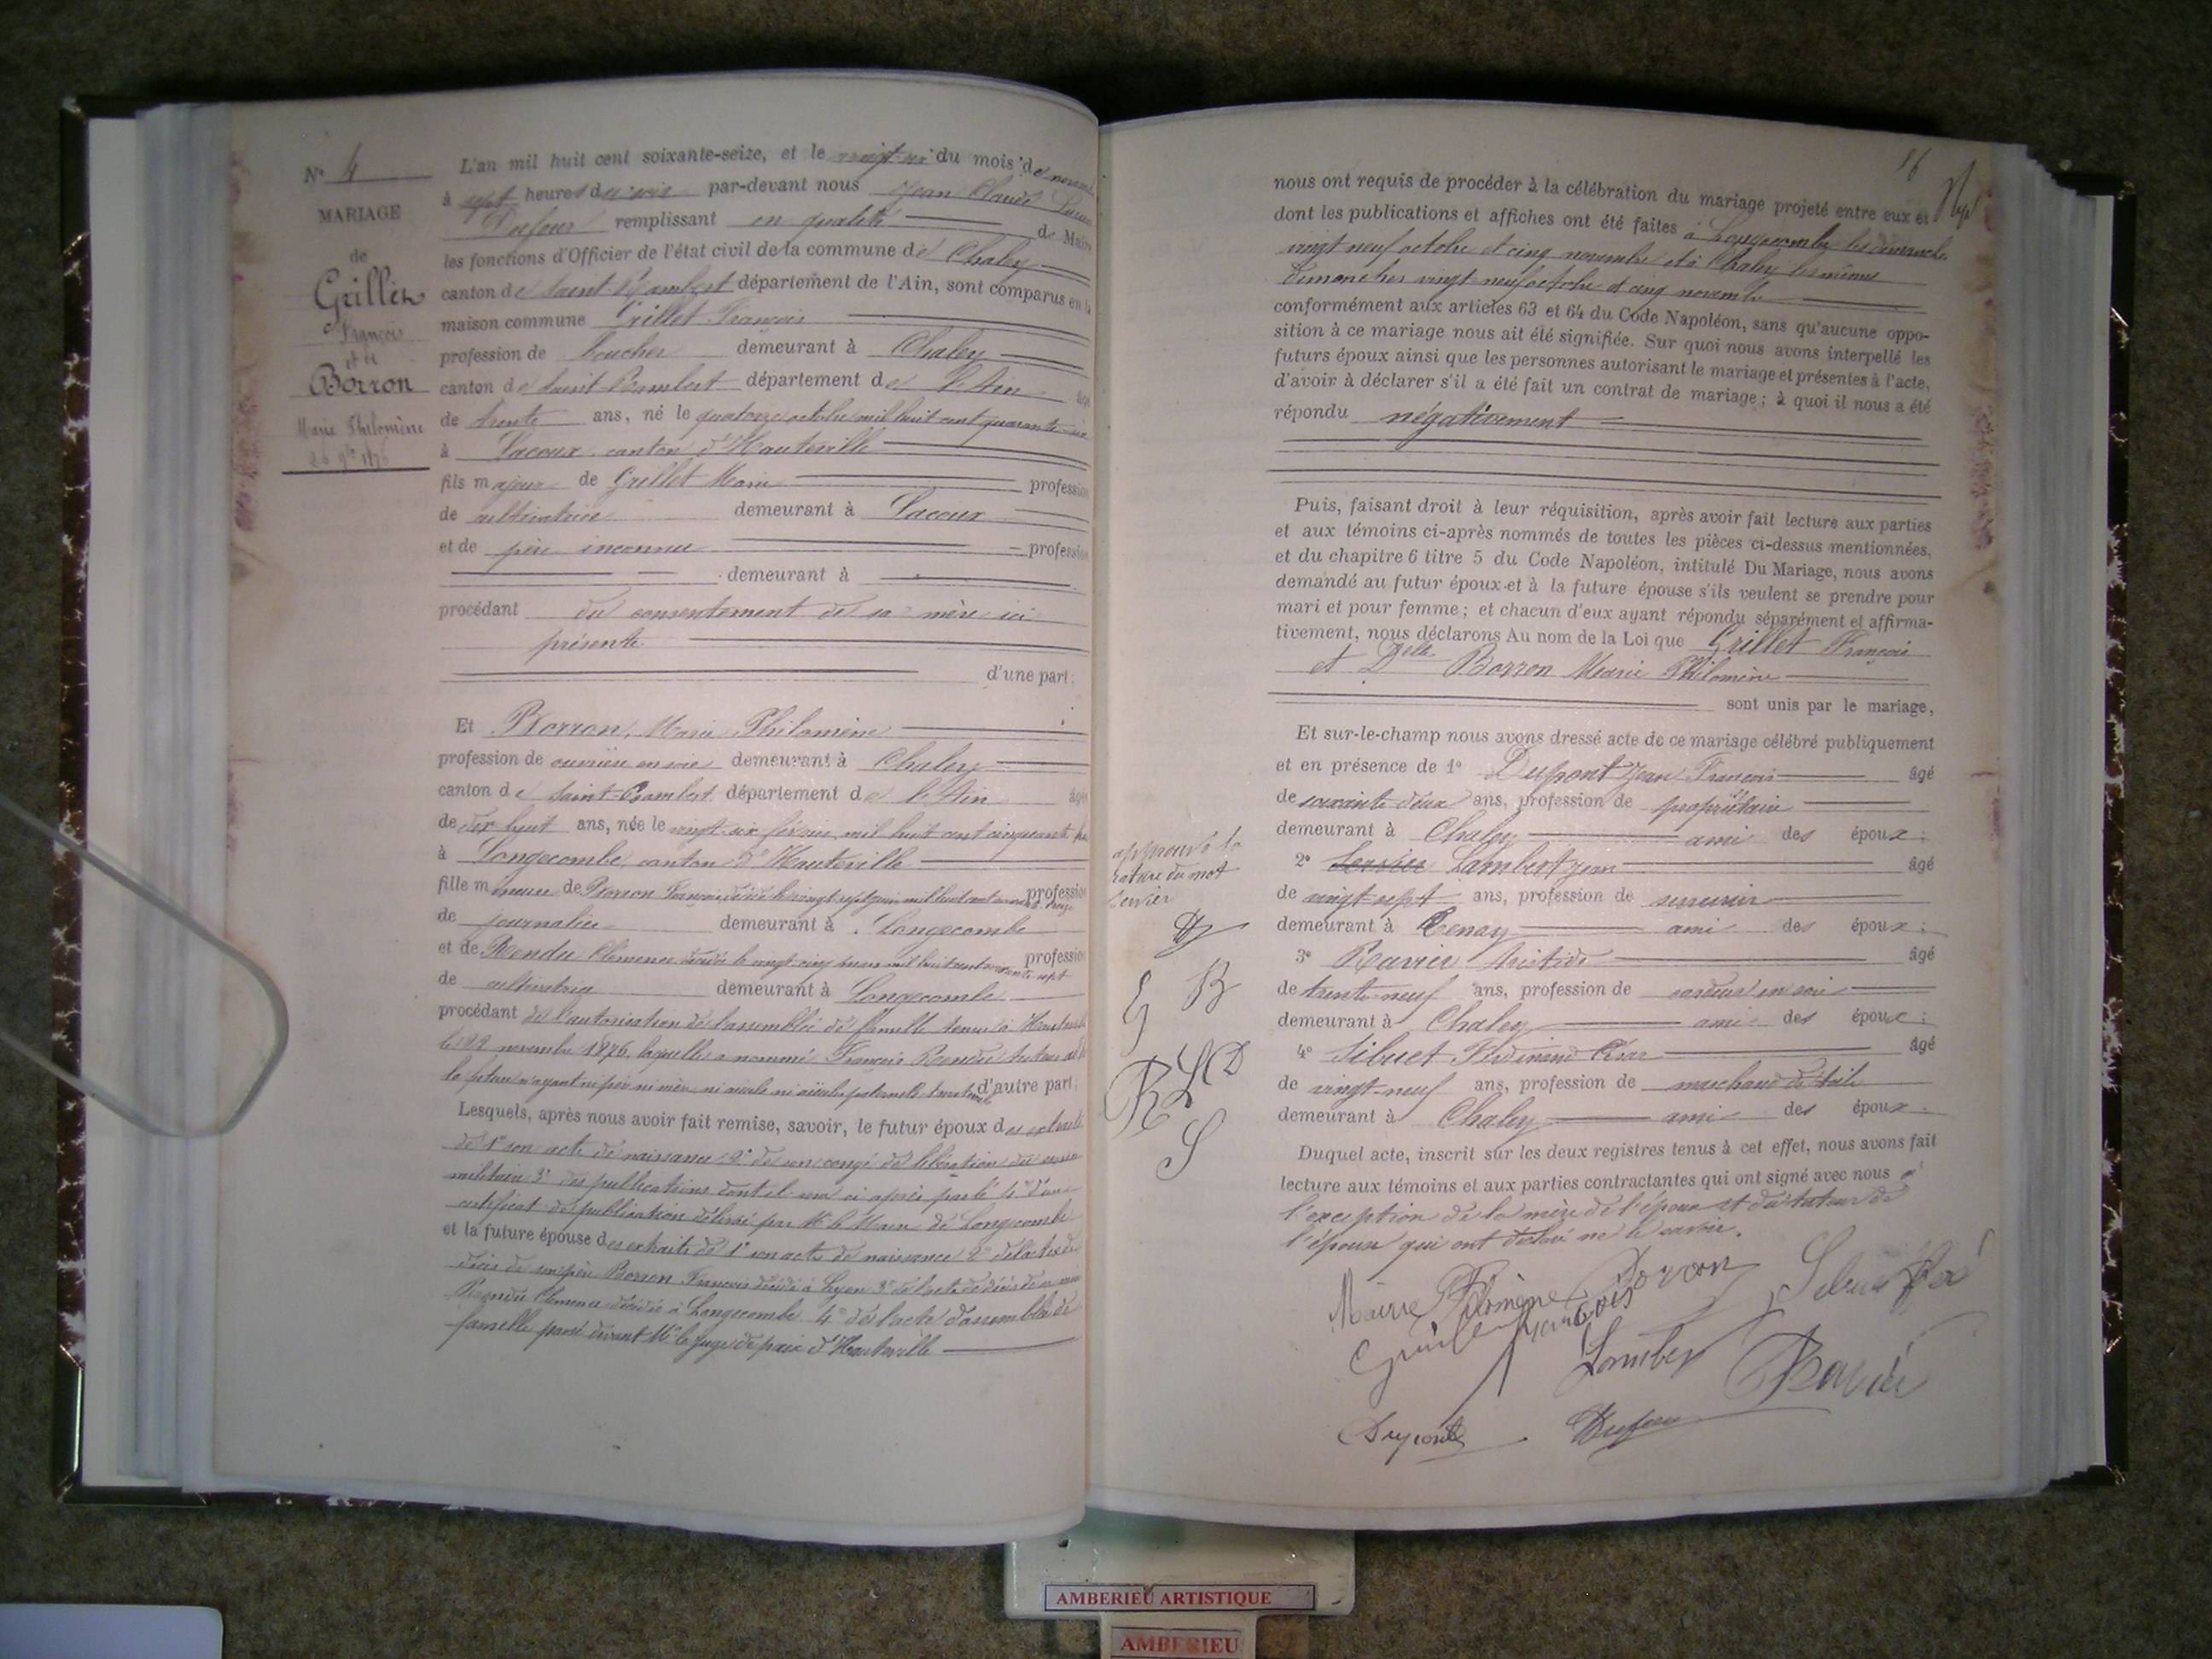 N° 4
MARIAGE
de
Grillet
François
et de
Borron
Marie Philomène
26 9bre 1876
L'an mil huit cent soixante-seize, et le vingt-six du mois de novembre
à sept heures du soir par-devant nous Jean Claude
Dufour remplissant en qualité de Maire
les fonctions d'Officier de l'état civil de la commune de Chaley
canton de Saint Rambert département de l'Ain, sont comparus en la
maison commune Grillet François
profession de boucher demeurant à Chaley
canton de Saint Rambert département de l'Ain âgé
de trente ans, né le quatorze octobre mil huit cent quarante six
à Lacoux canton d'Hauteville
fils majeur de Grillet Marie profession
de cultivatrice demeurant à Lacoux
et de père inconnu profession
demeurant à
procédant du consentement de sa mère ici
présente
d'une part;
Et Borron, Marie Philomène
profession de ouvrière en soie demeurant à Chaley
canton de Saint-Rambert département de l'Ain âgée
de dix huit ans, née le vingt six février mil huit cent cinquante huit
à Longecombe canton d'Hauteville
fille mineure de Borron François décédé le vingt sept juin mil huit cent profession
de journalier demeurant à Longecombe
et de Rendu Clémence décédée le vingt cinq mars mil huit cent soixante sept profession
de cultivatrice demeurant à Longecombe
procédant de l'autorisation de l'assemblée de famille tenue à Hauteville
le 22 novembre 1876, laquelle a nommé François Rendu tuteur
la future n'ayant ni père ni mère ni aïeuls ni aïeules paternels d'autre part;
Lesquels, après nous avoir fait remise, savoir, le futur époux des extraits
de 1° son acte de naissance 2° de son congé de libération du service
militaire 3° des publications dont il sera ci après parlé 4° d'un
certificat de publication délivré par Mr le Maire de Longecombe
et la future épouse des extraits de 1° son acte de naissance 2° de l'acte de
décès de son père Borron François décédé à Lyon 3° de l'acte de décès de sa mère
Rendu Clémence décédée à Longecombe 4° de l'acte d'assemblée de
famille passé devant Mr le juge de paix d'Hauteville
16
nous ont requis de procéder à la célébration du mariage projeté entre eux et
dont les publications et affiches ont été faites à Longecombe les dimanches
vingt neuf octobre et cinq novembre et à Chaley les mêmes
dimanches vingt neuf octobre et cinq novembre
conformément aux articles 63 et 64 du Code Napoléon, sans qu'aucune oppo-
sition à ce mariage nous ait été signifiée. Sur quoi nous avons interpellé les
futurs époux ainsi que les personnes autorisant le mariage et présentes à l'acte,
d'avoir à déclarer s'il a été fait un contrat de mariage; à quoi il nous a été
répondu négativement
Puis, faisant droit à leur réquisition, après avoir fait lecture aux parties
et aux témoins ci-après nommés de toutes les pièces ci-dessus mentionnées,
et du chapitre 6 titre 5 du Code Napoléon, intitulé Du Mariage, nous avons
demandé au futur époux et à la future épouse s'ils veulent se prendre pour
mari et pour femme; et chacun d'eux ayant répondu séparément et affirma-
tivement, nous déclarons Au nom de la Loi que Grillet François
et Delle Borron Marie Philomène
sont unis par le mariage,
Et sur-le-champ nous avons dressé acte de ce mariage célébré publiquement
et en présence de 1° Dupont Jean François âgé
de soixante deux ans, profession de propriétaire
demeurant à Chaley ami des époux;
2° Servier Lambert Jean âgé
de vingt-sept ans, profession de serrurier
demeurant à Tenay ami des époux;
3° Ravier Aristide âgé
de trente-neuf ans, profession de cardeur en soie
demeurant à Chaley ami des époux;
4° Sibuet Ferdinand César âgé
de vingt-neuf ans, profession de marchand de toile
demeurant à Chaley ami des époux.
Duquel acte, inscrit sur les deux registres tenus à cet effet, nous avons fait
lecture aux témoins et aux parties contractantes qui ont signé avec nous à
l'exception de la mère de l'époux et du tuteur de
l'épouse qui ont déclaré ne le savoir.
approuvé la
rature du mot
servier
G B
R LCD
S
Marie Filomène Borron
François
Lamber
Ravier
Dupont
Dufour
AMBERIEU ARTISTIQUE
AMBERIEU